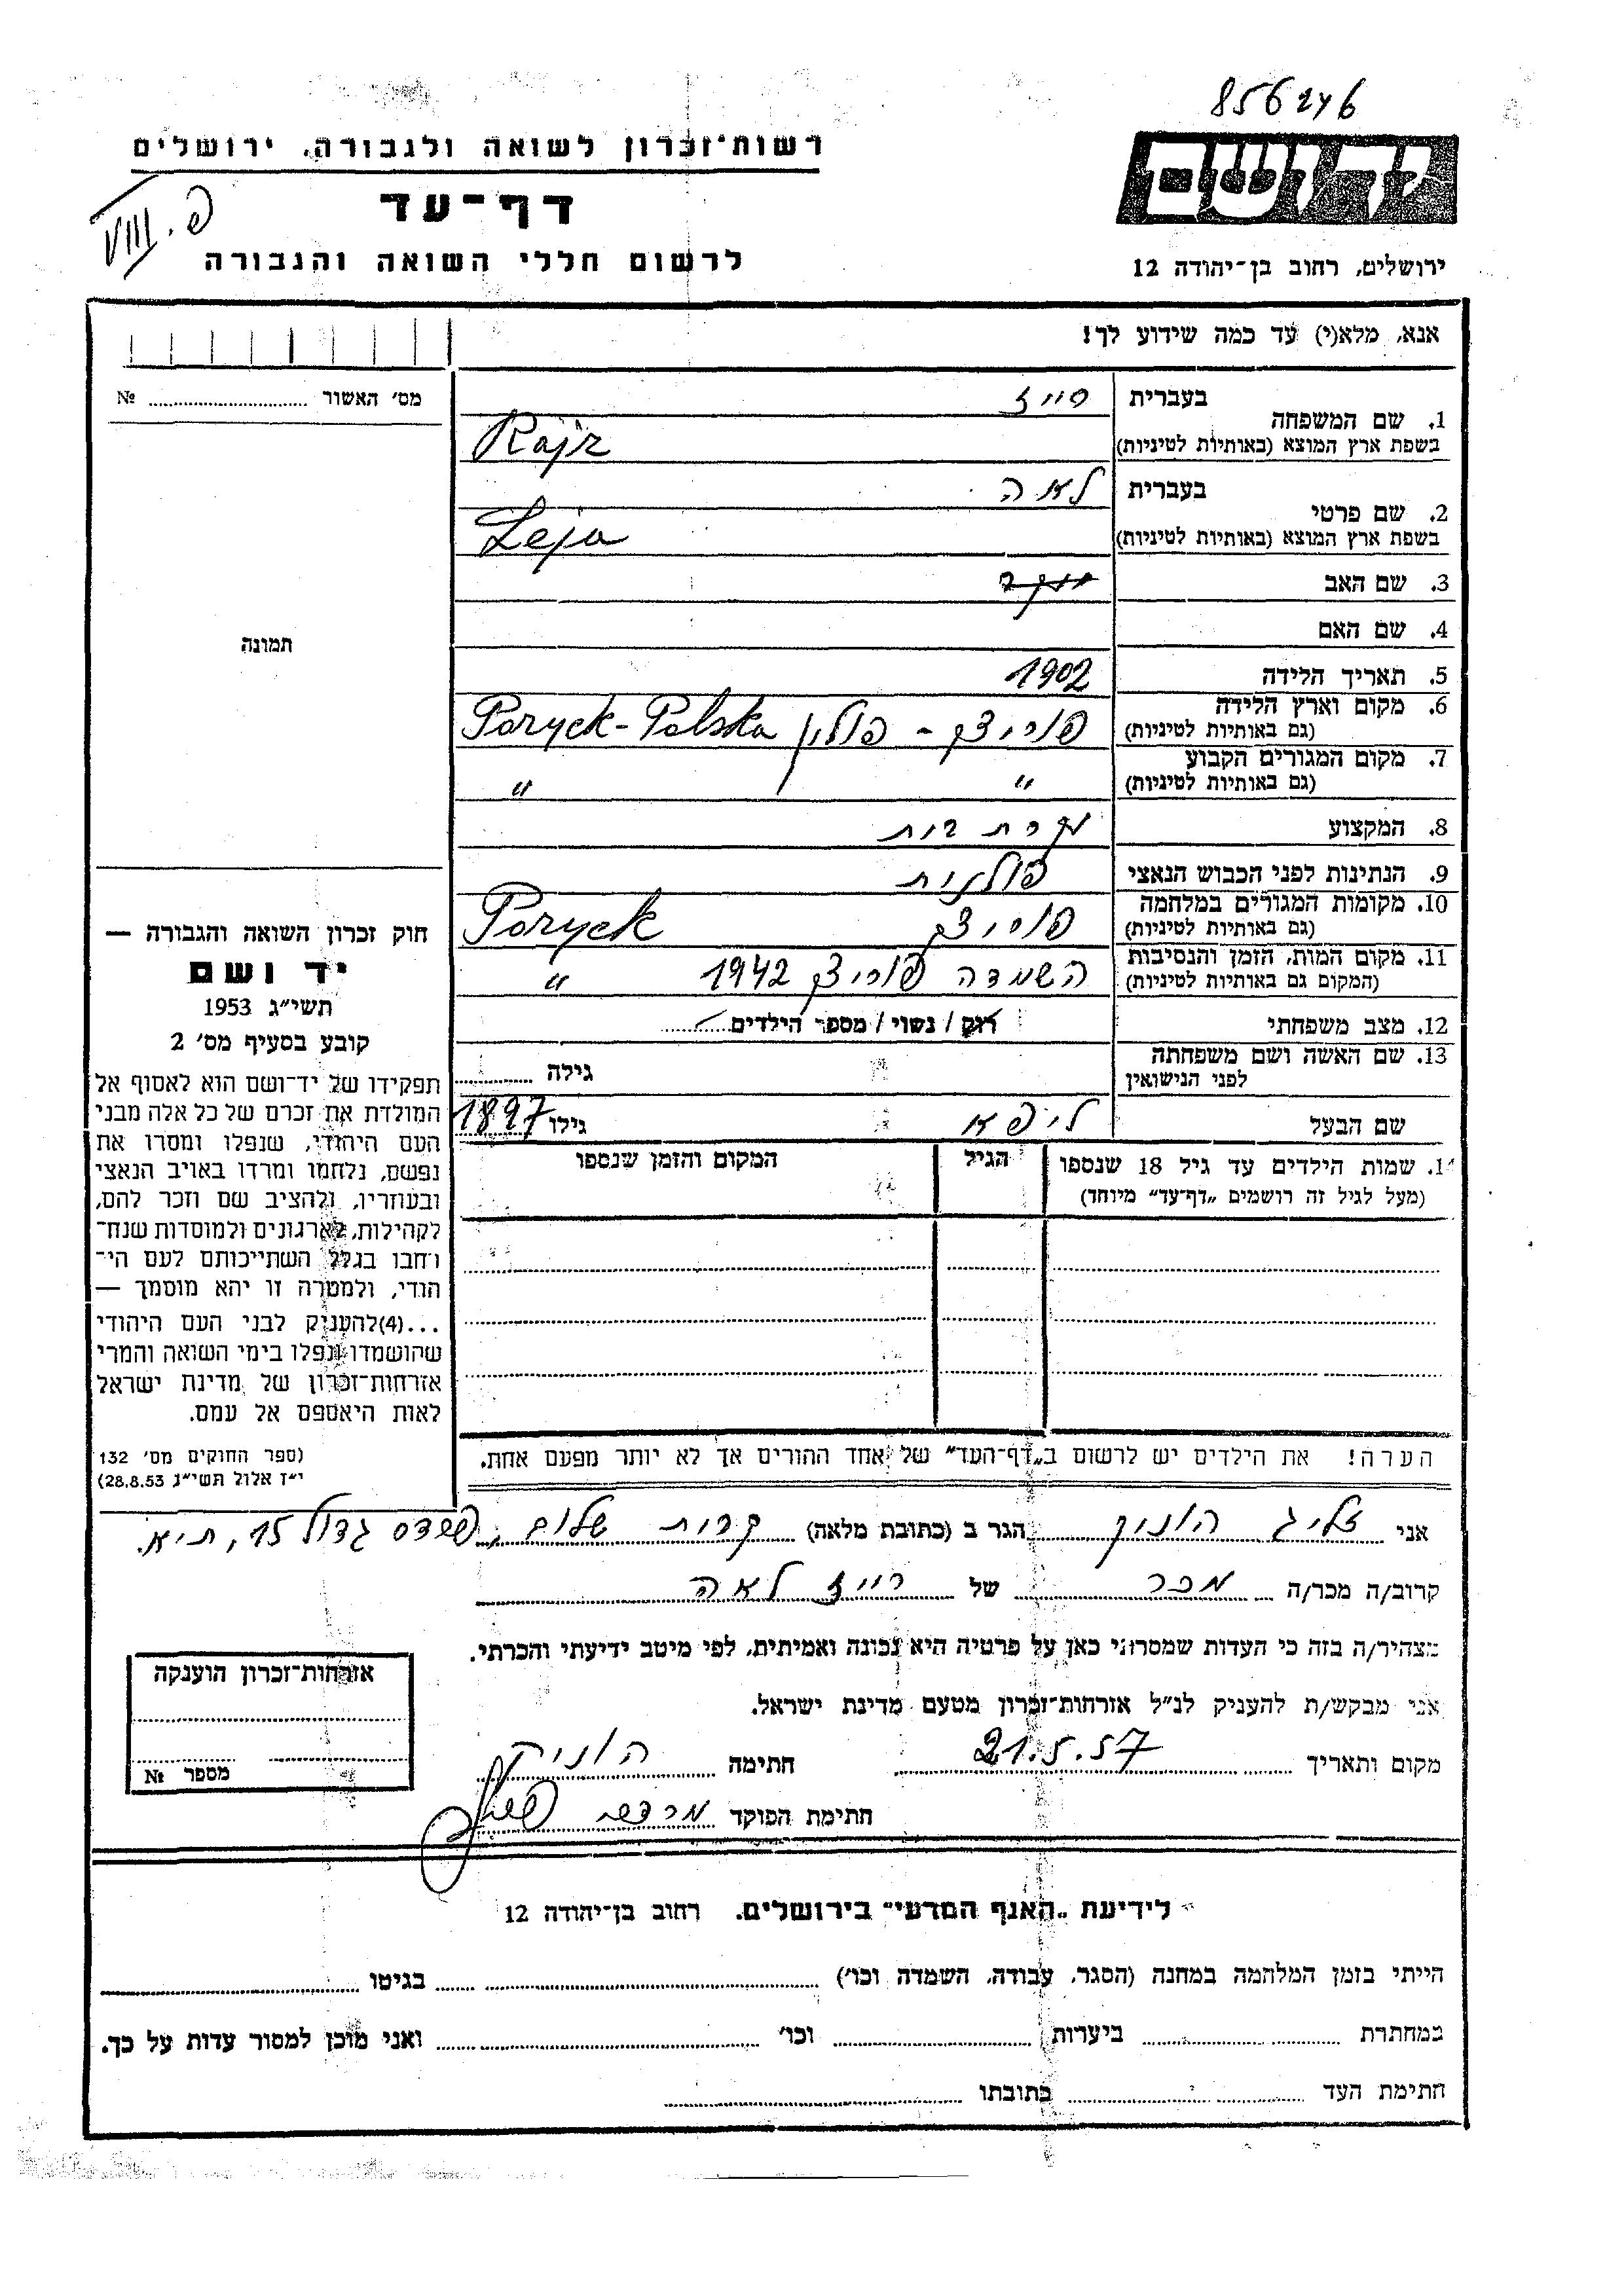 856246
רשות־זכרון לשואה ולגבורה, ירושלים
יד ושם
דף־עד
פ. VIII
לרשום חללי השואה והגבורה
ירושלים, רחוב בן־יהודה 12
אנא, מלא(י) עד כמה שידוע לך!
מס׳ האשור № 
1. שם המשפחה
בעברית רייז
בשפת ארץ המוצא (באותיות לטיניות) Rajz
2. שם פרטי
בעברית לאה
בשפת ארץ המוצא (באותיות לטיניות) Leja
3. שם האב
4. שם האם
תמונה
5. תאריך הלידה 1902
6. מקום וארץ הלידה
(גם באותיות לטיניות) פוריצק - פולין Poryck-Polska
7. מקום המגורים הקבוע
(גם באותיות לטיניות) " "
8. המקצוע עקרת בית
9. הנתינות לפני הכבוש הנאצי פולנית
10. מקומות המגורים במלחמה
(גם באותיות לטיניות) פוריצק Poryck
11. מקום המות, הזמן והנסיבות
(המקום גם באותיות לטיניות) השמדה פוריצק 1942 "
12. מצב משפחתי רוק / נשוי / מספר הילדים
13. שם האשה ושם משפחתה
לפני הנישואין גילה
שם הבעל ליפא גילו 1897
14. שמות הילדים עד גיל 18 שנספו
(מעל לגיל זה רושמים „דף־עד״ מיוחד)
הגיל
המקום והזמן שנספו
הערה! את הילדים יש לרשום ב„דף־העד״ של אחד ההורים אך לא יותר מפעם אחת.
חוק זכרון השואה והגבורה —
יד ושם
תשי״ג 1953
קובע בסעיף מס׳ 2
תפקידו של יד־ושם הוא לאסוף אל
המולדת את זכרם של כל אלה מבני
העם היהודי, שנפלו ומסרו את
נפשם, נלחמו ומרדו באויב הנאצי
ובעוזריו, ולהציב שם וזכר להם,
לקהילות, לארגונים ולמוסדות שנח־
רחבו בגלל השתייכותם לעם הי־
הודי, ולמטרה זו יהא מוסמך —
...(4)להעניק לבני העם היהודי
שהושמדו ונפלו בימי השואה והמרי
אזרחות־זכרון של מדינת ישראל
לאות היאספם אל עמם.
(ספר החוקים מס׳ 132
י״ז אלול תשי״ג 28.8.53)
אני זליג הוניק הגר ב (כתובת מלאה) קרית שלום, פרדס גדול 15, ת״א.
קרוב/ה מכר/ה מכר של רייז לאה
מצהיר/ה בזה כי העדות שמסרתי כאן על פרטיה היא נכונה ואמיתית, לפי מיטב ידיעתי והכרתי.
אני מבקש/ת להעניק לנ״ל אזרחות־זכרון מטעם מדינת ישראל.
מקום ותאריך 21.5.57 חתימה הוניק
חתימת הפוקד
אזרחות־זכרון הוענקה
מספר №
לידיעת „האגף המדעי״ בירושלים, רחוב בן־יהודה 12
הייתי בזמן המלחמה במחנה (הסגר, עבודה, השמדה וכו׳) בגיטו
במחתרת ביערות וכו׳ ואני מוכן למסור עדות על כך.
חתימת העד כתובתו